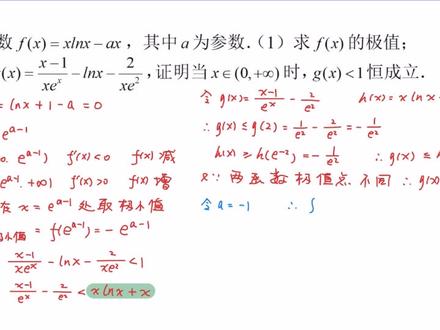 数 f(x) = xlnx − ax，其中 a 为参数．（1）求 f(x) 的极值；
(x) = \frac{x-1}{xe^x} − lnx − \frac{2}{xe^2}，证明当 x∈(0,+∞) 时，g(x)<1 恒成立．
= lnx + 1 − a = 0
e^{a-1}
e^{a-1}) f'(x) < 0 f(x) 减
e^{a-1}, +∞) f'(x) > 0 f(x) 增
在 x = e^{a-1} 处取极小值
小值 = f(e^{a-1}) = − e^{a-1}
\frac{x-1}{xe^x} − lnx − \frac{2}{xe^2} < 1
\frac{x-1}{e^x} − \frac{2}{e^2} < xlnx + x
令 g(x) = \frac{x-1}{e^x} − \frac{2}{e^2} h(x) = x ln x
∴ g(x) ≤ g(2) = \frac{1}{e^2} − \frac{2}{e^2} = − \frac{1}{e^2}
h(x) ≥ h(e^{-2}) = − \frac{1}{e^2} ∴ g(x) ≤ h
又∵ 两函数极值点不同 ∴ g(x)
令 a = −1 ∴ f